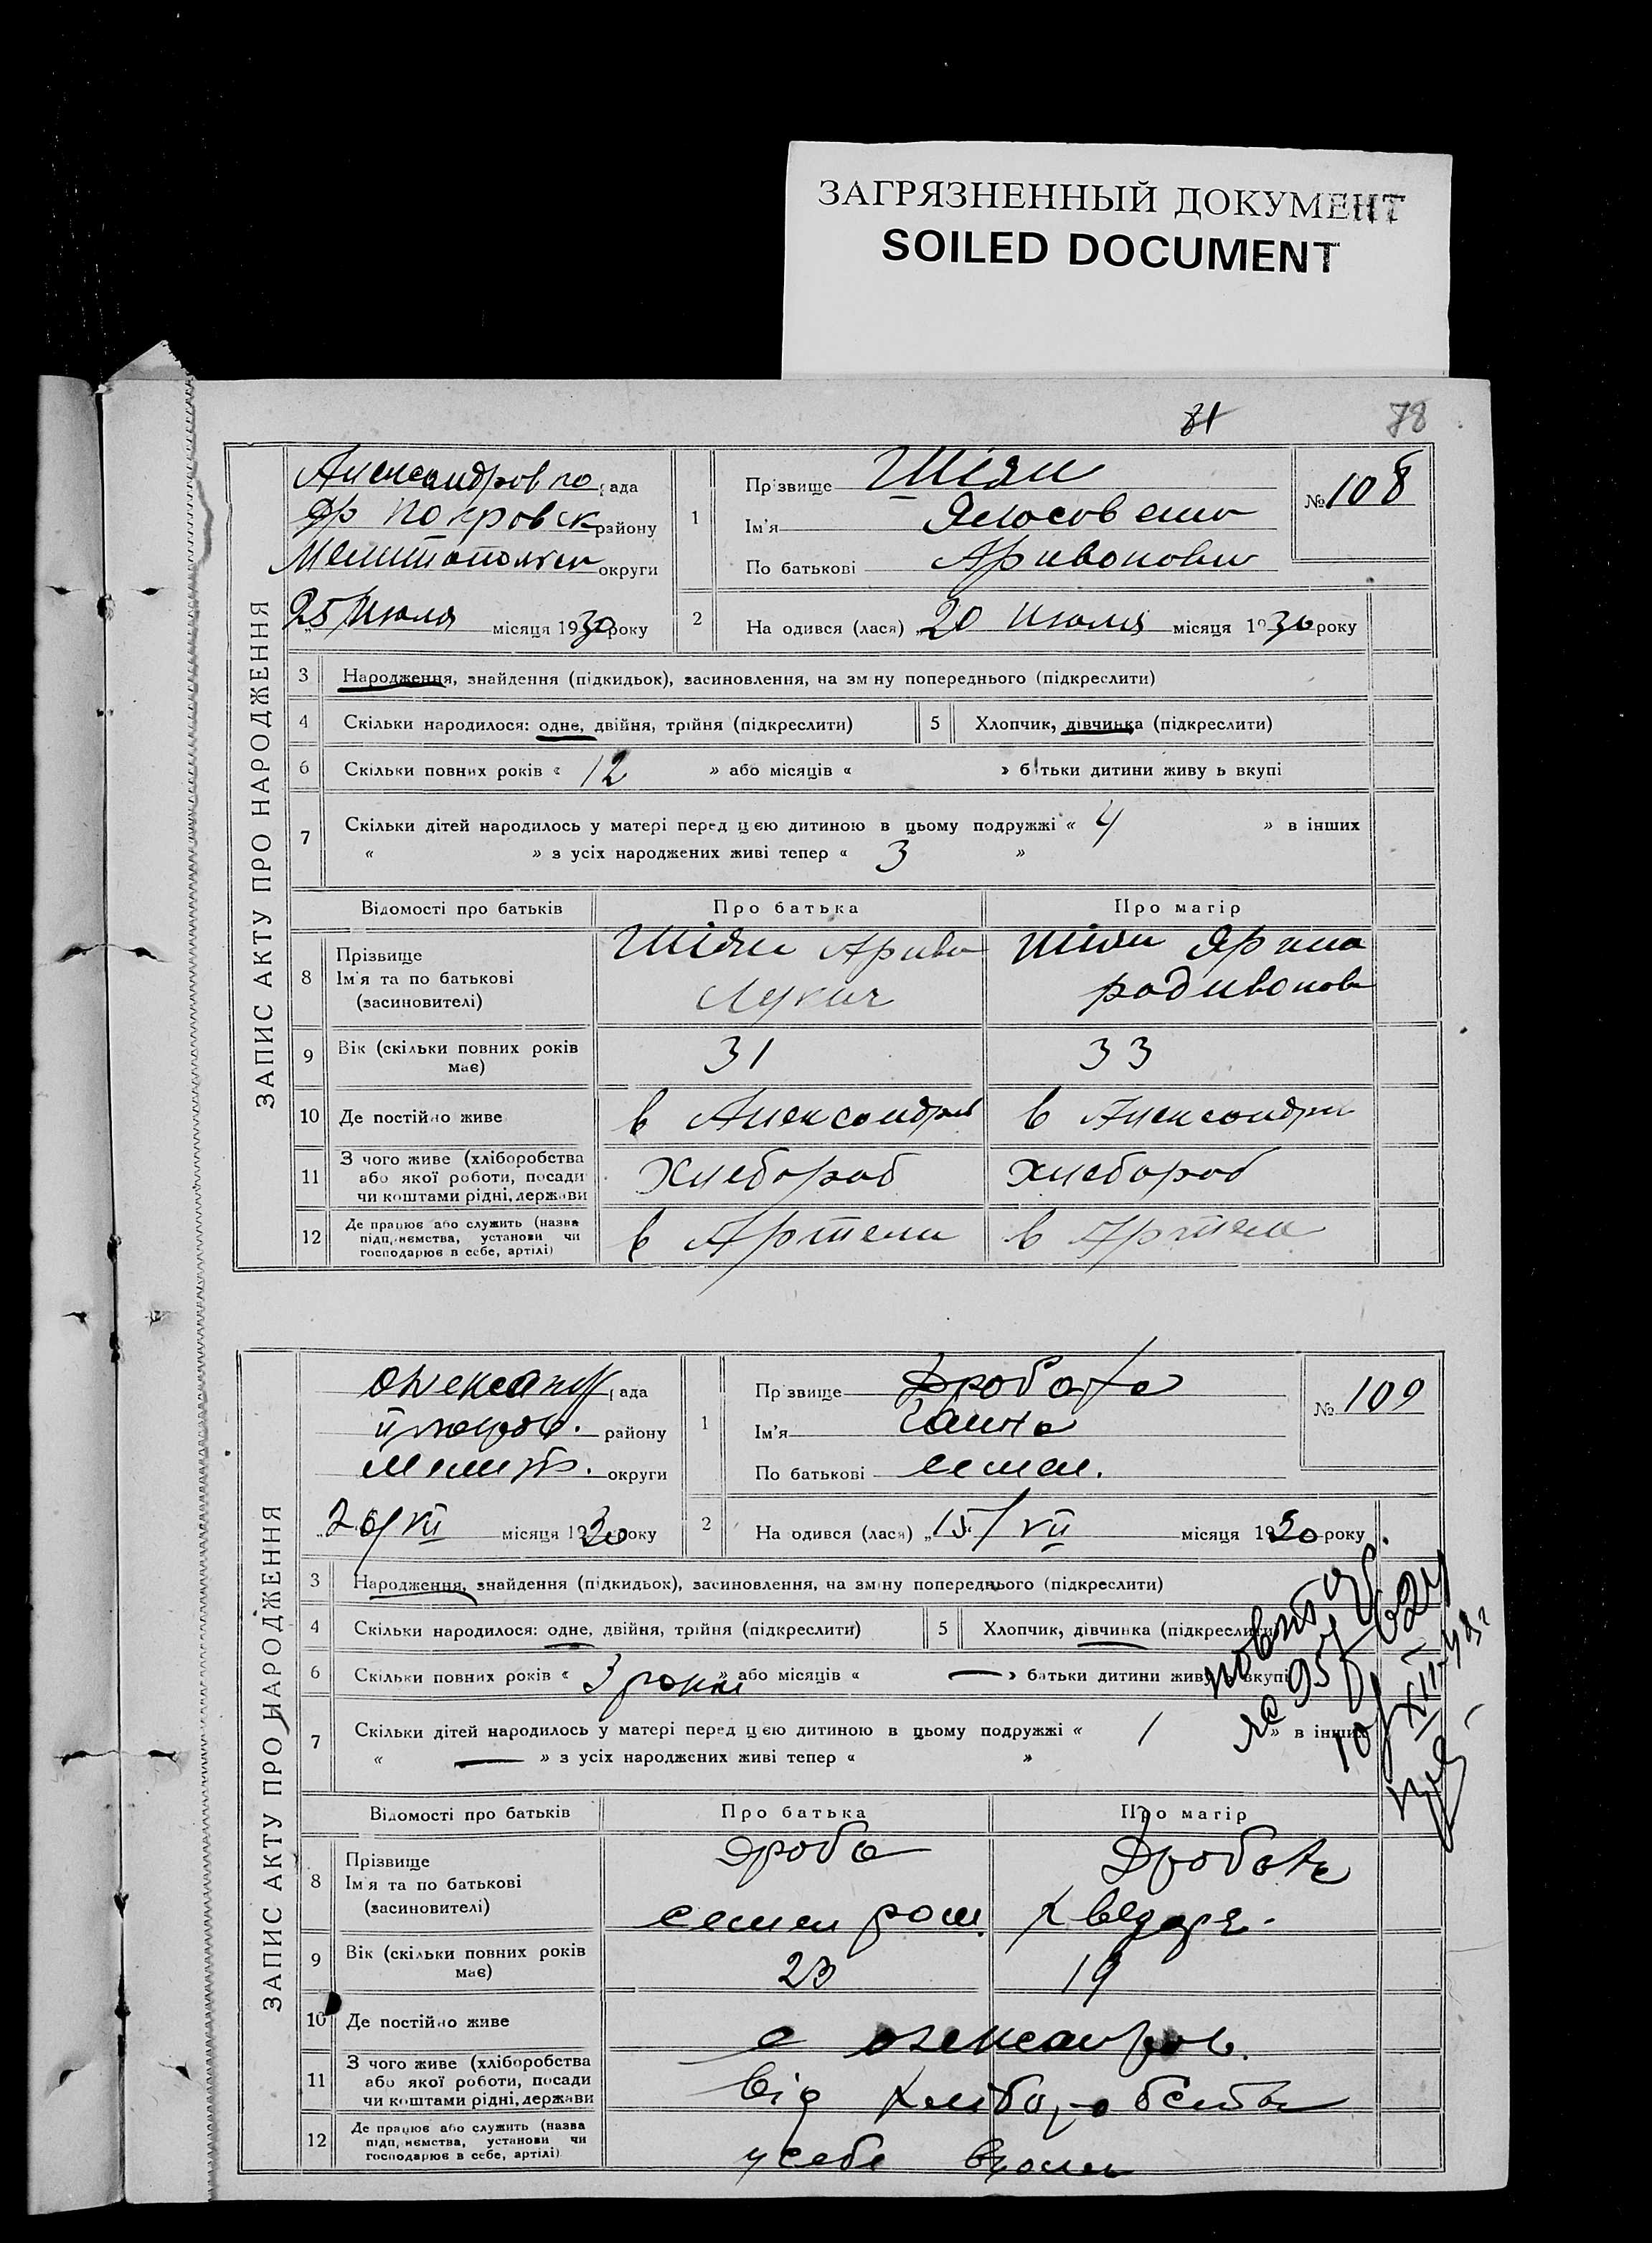 ЗАГРЯЗНЕННЫЙ ДОКУМЕНТ
SOILED DOCUMENT
78
ЗАПИС АКТУ ПРО НАРОДЖЕННЯ
рада
Покровск району
округи
25 Июля місяця 1930 року
1
Прізвище Шіян
Ім'я
По батькові
№ 108
2
На одився (лася) „20 Июля місяця 1930 року
3 Народження, знайдення (підкидьок), засиновлення, на зміну попереднього (підкреслити)
4 Скільки народилося: одне, двійня, трійня (підкреслити)
5 Хлопчик, дівчинка (підкреслити)
6 Скільки повних років « 12 » або місяців « » батьки дитини живуть вкупі
7 Скільки дітей народилось у матері перед цією дитиною в цьому подружжі « 4 » в інших
« » з усіх народжених живі тепер « 3 »
Відомості про батьків Про батька Про матір
8 Прізвище
Ім'я та по батькові
(засиновителі)
Шіян Ариво
Лукич
Шіян Ярина
радивонов
9 Вік (скільки повних років
має)
31 33
10 Де постійно живе
в Александров в Александри
11 З чого живе (хліборобства
або якої роботи, посади
чи коштами рідні, держави
Хлебороб хлебороб
12 Де працює або служить (назва
підприємства, установи чи
господарює в себе, артілі)
в Артели в Артели
ЗАПИС АКТУ ПРО НАРОДЖЕННЯ
рада
району
Мелит. округи
місяця 1930 року
1
Прізвище Дробота
Ім'я Ганна
По батькові Семен.
№ 109
2
На одився (лася) „15/VII місяця 1930 року
3 Народження, знайдення (підкидьок), засиновлення, на зміну попереднього (підкреслити)
4 Скільки народилося: одне, двійня, трійня (підкреслити)
5 Хлопчик, дівчинка (підкреслити)
6 Скільки повних років « 3 роки » або місяців « — » батьки дитини живуть вкупі
7 Скільки дітей народилось у матері перед цією дитиною в цьому подружжі « 1 » в інших
« — » з усіх народжених живі тепер « »
Відомості про батьків Про батька Про матір
8 Прізвище
Ім'я та по батькові
(засиновителі)
Дробо
семен
9 Вік (скільки повних років
має)
23 19
10 Де постійно живе
с
11 З чого живе (хліборобства
або якої роботи, посади
чи коштами рідні, держави
від хліборобства
12 Де працює або служить (назва
підприємства, установи чи
господарює в себе, артілі)
у себе